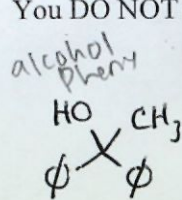 You DO NOT
alcohol
Pheny
HO CH3
ϕ ϕ